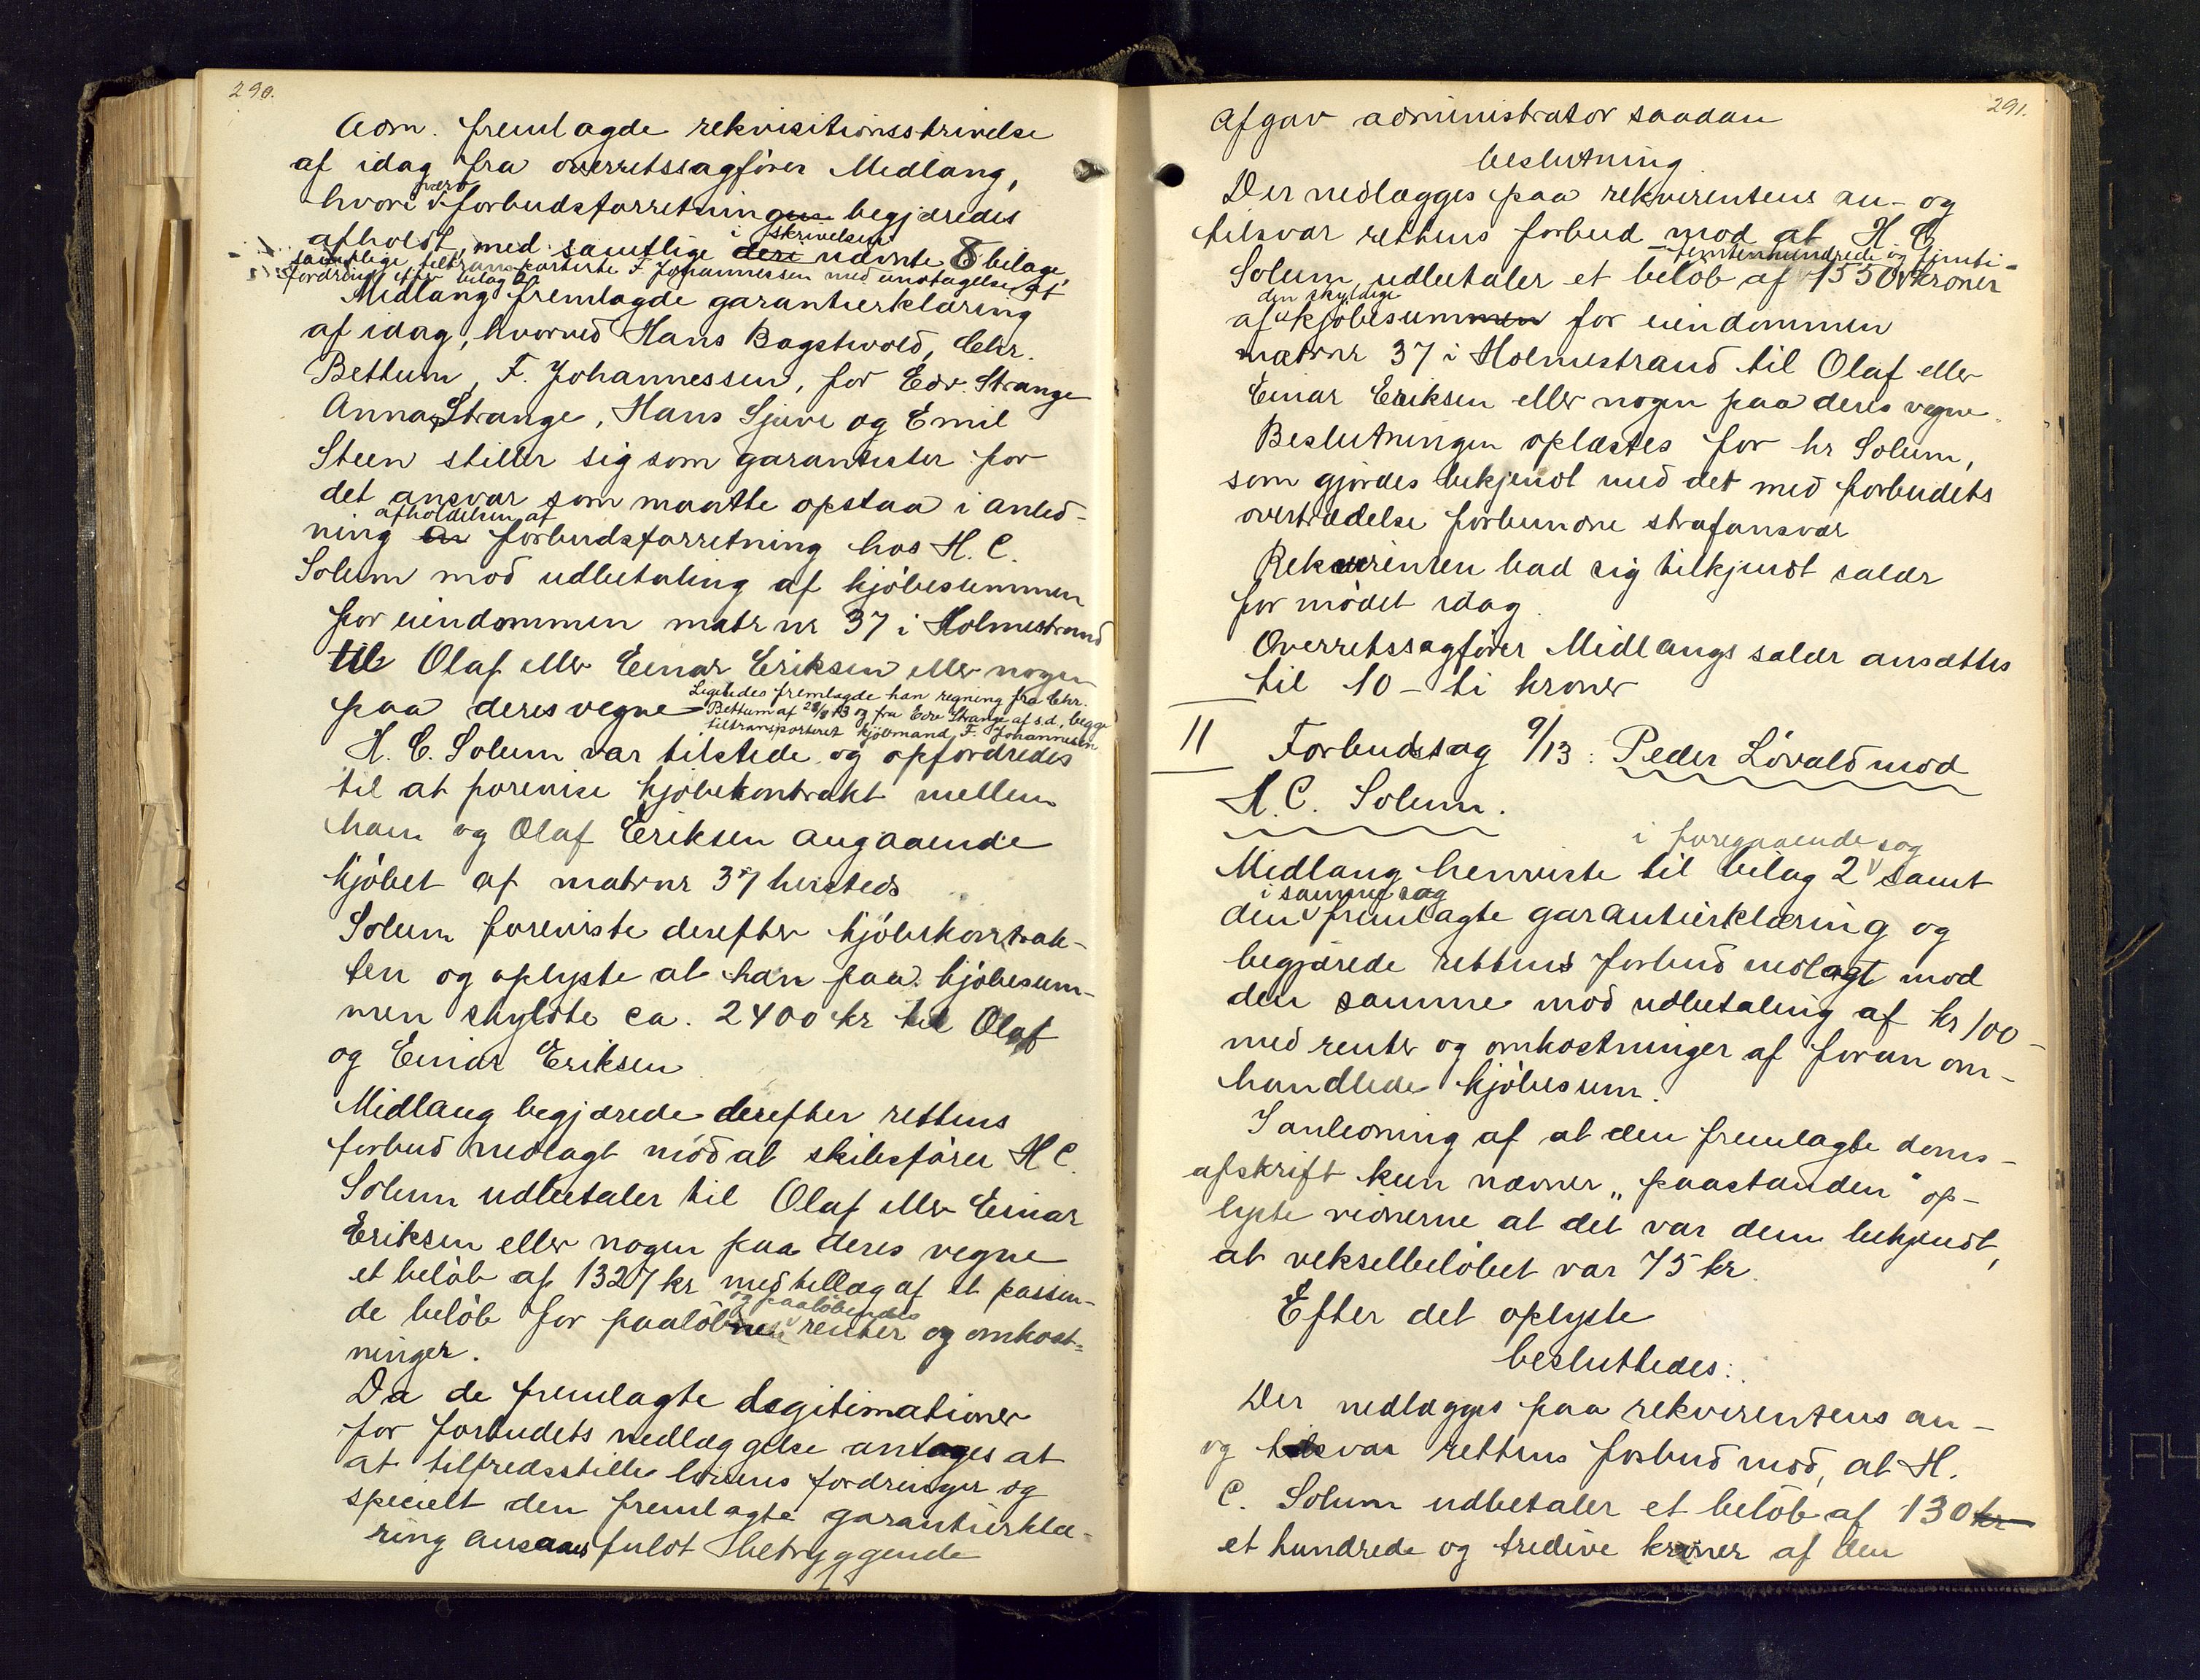 290.
Adm. fremlagde rekvisitionsskrivelse
af idag fra overretssagfører Midlang,
hvori nærv forbudsforretningen begjæredes
afholdt, med samtlige deri i skrivelsen nævnte 8 bilage,
samtlige tiltransporterte F. Johannessen med undtagelse af
fordring efter bilag 2.
Midlang fremlagde garantierklæring
af idag, hvorved Hans Bogstvold, Chr.
Bettum, F. Johannessen, for Edv. Strange
Anna Strange, Hans Gjuve og Emil
Steen stiller sig som garantister for
det ansvar som maatte opstaa i anled-
ning afholdelsen af forbudsforretning hos H. C.
Solum mod udbetaling af kjøbesummen
for eiendommen matr nr 37 i Holmestrand
til Olaf eller Einar Eriksen eller nogen
paa deres vegne Ligeledes fremlagde han regning fra Chr.
Bettum af 28/8 13 og fra Edv Strange af s.d., begge
tiltransporteret kjøbmand F. Johannessen
H. C. Solum var tilstede og opfordredes
til at forevise kjøbekontrakt mellem
ham og Olaf Eriksen angaaende
kjøbet af matr nr 37 hersteds
Solum foreviste derefter kjøbekontrak-
ten og oplyste at han paa kjøbesum-
men skyldte ca. 2400 kr til Olaf
og Einar Eriksen
Midlang begjærede derefter rettens
forbud nedlagt mod at skibsfører H C.
Solum udbetaler til Olaf eller Einar
Eriksen eller nogen paa deres vegne
et beløb af 1327 kr med tillæg af et passen-
de beløb for paaløbne og paaløbendes renter og omkost-
ninger.
Da de fremlagte legitimationer
for forbudets nedlæggelse antages at
at tilfredsstille lovens fordringer og
specielt den fremlagte garantierklæ-
ring ansaaes fuldt betryggende
291.
afgav administrator saadan
beslutning
Der nedlægges paa rekvirentens an- og
tilsvar rettens forbud mod at H C
Solum udbetaler et beløb af 1550 - femtenhundrede og femti - kroner
af den skyldige kjøbesummen for eiendommen
matr nr 37 i Holmestrand til Olaf eller
Einar Eriksen eller nogen paa deres vegne.
Beslutningen oplæstes for hr Solum,
som gjordes bekjendt med det med forbudets
overtrædelse forbundne strafansvar
Rekvirenten bad sig tilkjendt salær
for mødet idag.
Overretssagfører Midlangs salær ansættes
til 10 - ti kroner
11 Forbudssag 9/13: Peder Løvald mod
H. C. Solum.
Midlang henviste til bilag 2 i foregaaende sag samt
den i samme sag fremlagte garantierklæring og
begjærede rettens forbud nedlagt mod
den samme mod udbetaling af kr 100 -
med renter og omkostninger af foran om-
handlede kjøbesum.
I anledning af at den fremlagte doms-
afskrift kun nævner „paastanden" op-
lyste vidnerne at det var dem bekjendt,
at vekselbeløbet var 75 kr.
Efter det oplyste
besluttedes:
Der nedlægges paa rekvirentens an-
og tilsvar rettens forbud mod, at H.
C. Solum udbetaler et beløb af 130 kr
et hundrede og tredive kroner af den